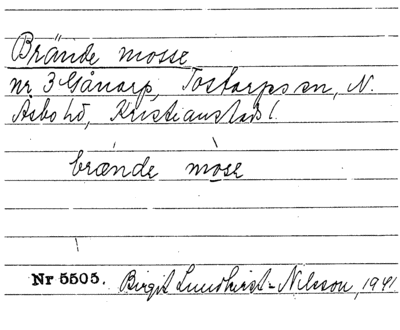 Brände mosse
nr 3 Gånarp, Tostarps sn, N.
Asbo hd, Kristianstads l.
brænde mose
Nr 5505. Birgit Lundkvist-Nilsson, 1941